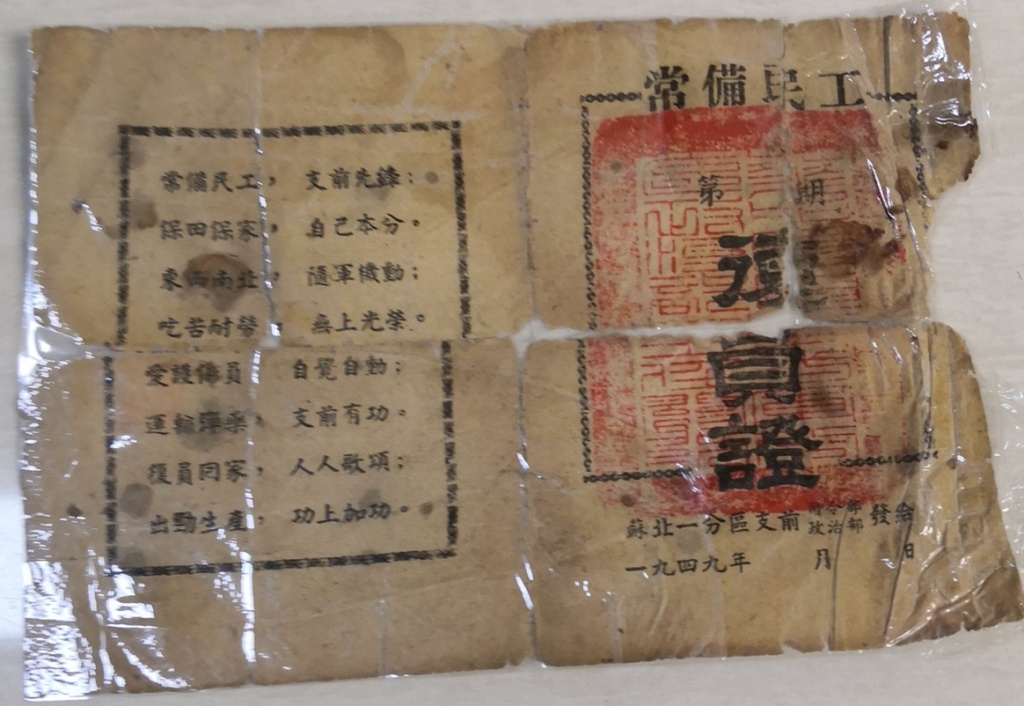 常備民工，支前先鋒；
保田保家，自己本分。
東西南北，隨軍機動；
吃苦耐勞，無上光榮。
愛護傷員，自覺自動；
運輸彈藥，支前有功。
復員回家，人人歌頌；
出勤生產，功上加功。
常備民工
第 期
復員證
蘇北一分區支前司令部政治部發給
一九四九年 月 日